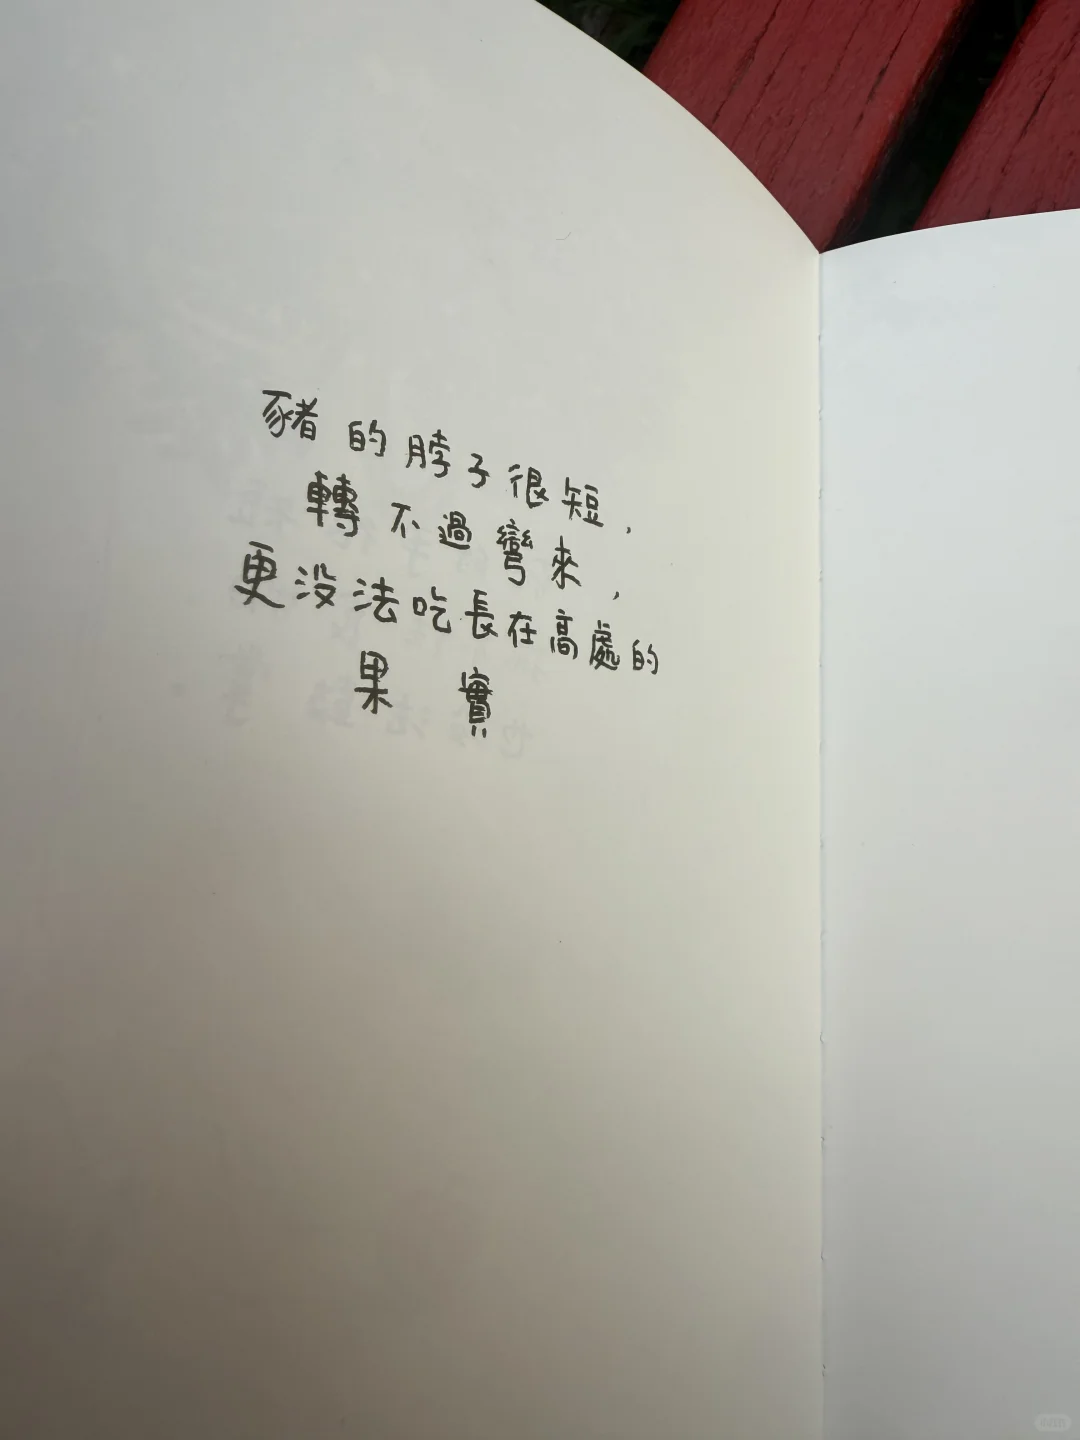 豬的脖子很短，
轉不過彎來，
更没法吃長在高處的
果實